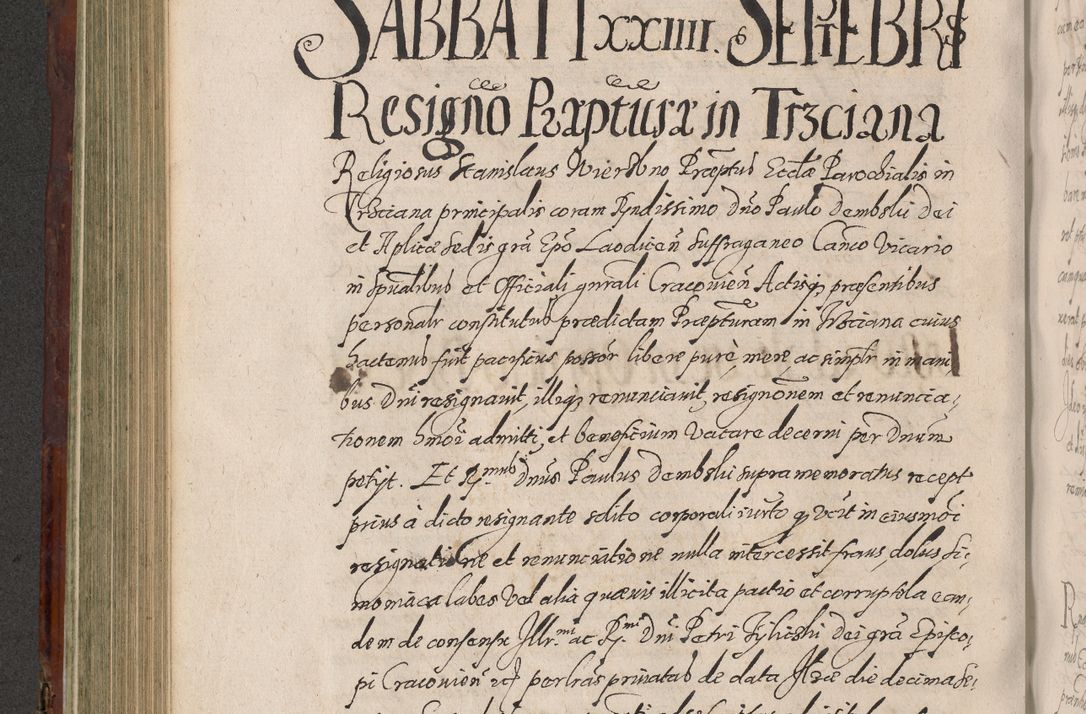 SABBATI XXIIII. SEPTEBRIS
Resignõ Præptúræ in Trzciana
Religiosus Stanislaus Wierzbno Præptus Ecclæ Parochialis in
Trzciana principalis coram Rndissimo Dno Paulo Dembski Dei
et Aplicæ Sedis grã Epõ Laodiceñ Suffraganeo Canco Vicario
in Spualibus et Officiali gnrali Cracovieñ Actisq præsentibus
personalr constitutus prædictam Præpturam in Trzciana cuius
hactenus fuit pacificus possor libere pure, mere, ac simplr in mani
bus Dni resignavit, illiq renunciavit, resignonem et renuncia,
tionem hmoi admitti, et beneficium vacare decerni per Dnum
petyt. Et Rmus Dnus Paulus Dembski supramemoratus recept
prius à dicto resignante solito corporali iurto q vcit in eiusmõi
resignatione et renunciatione nulla intercessit fraus, dolus si,
moniaca labes vel alia quævis illicita pactio et corruptela ean,
dem de consensu Illr.mi ac R.mi Dni Petri Tyliczki Dei grã Episco,
pi Cracovieñ etc per lras privatas de data Ilzæ die decima se,